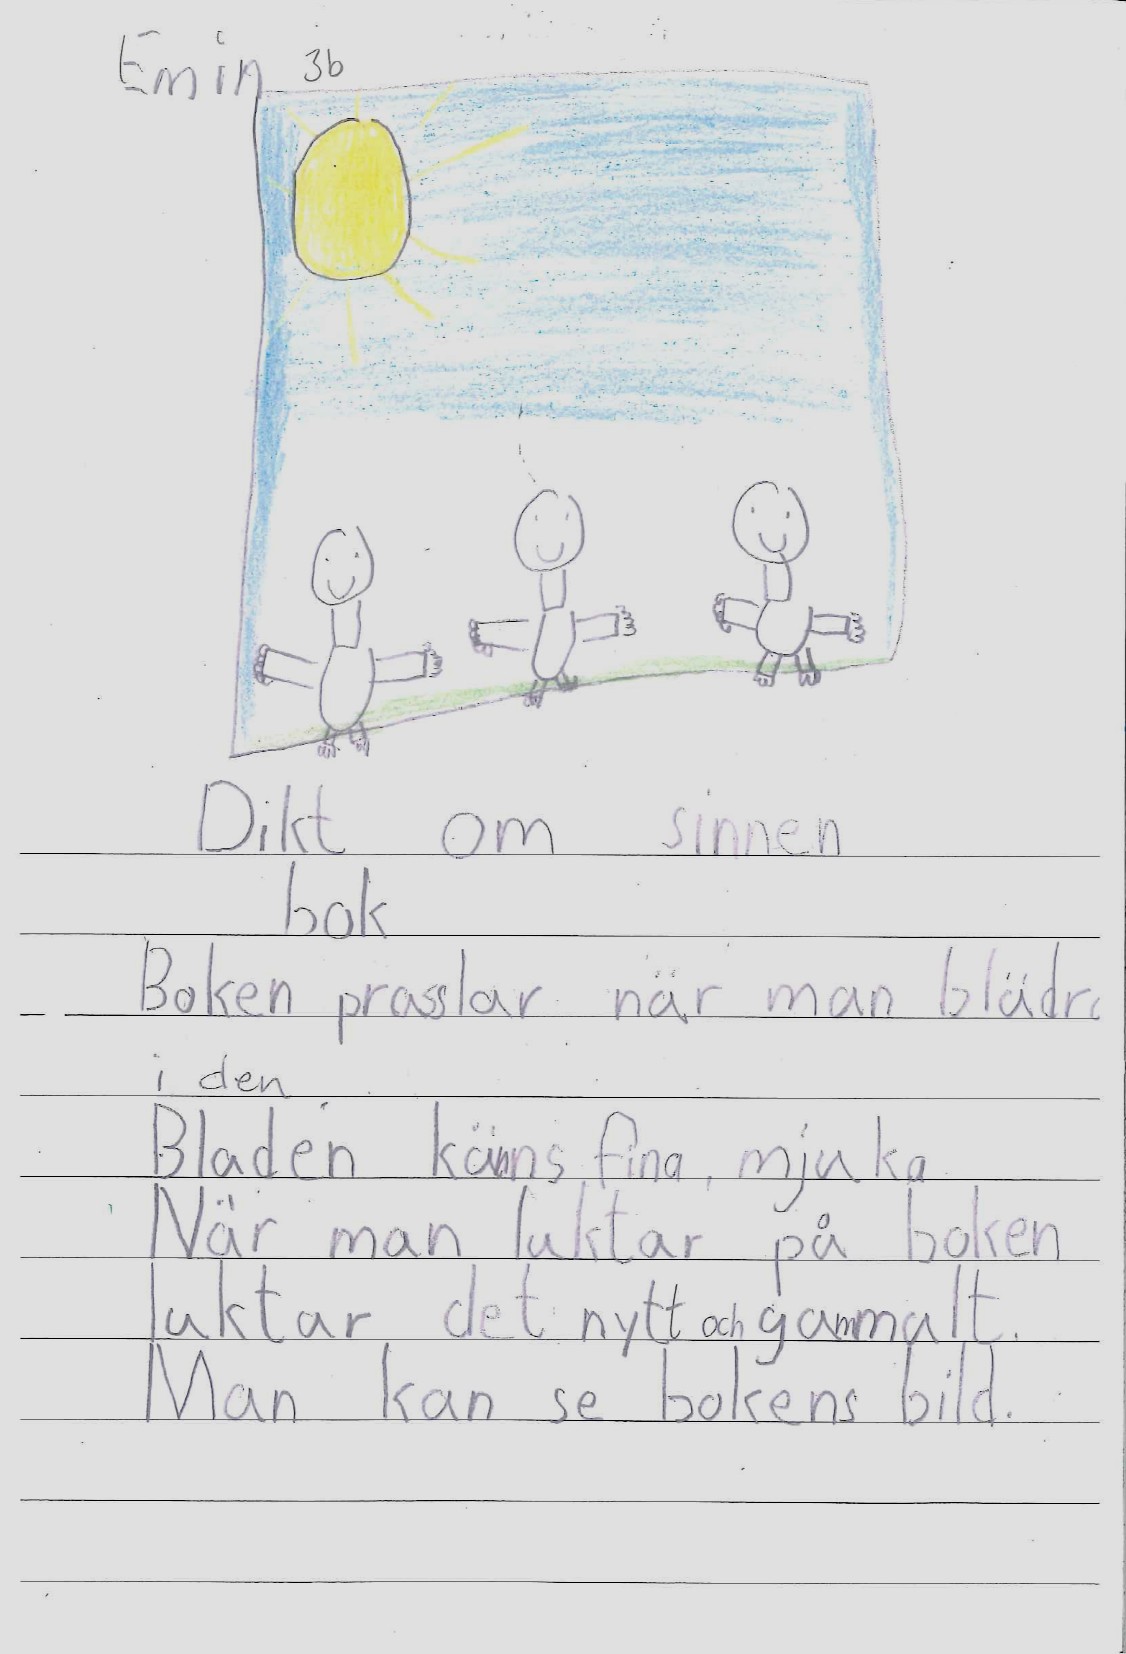 Emin 3b
Dikt om sinnen
bok
Boken prasslar när man blädra
i den
Bladen känns fina, mjuka
När man luktar på boken
luktar det nytt och gammalt.
Man kan se bokens bild.